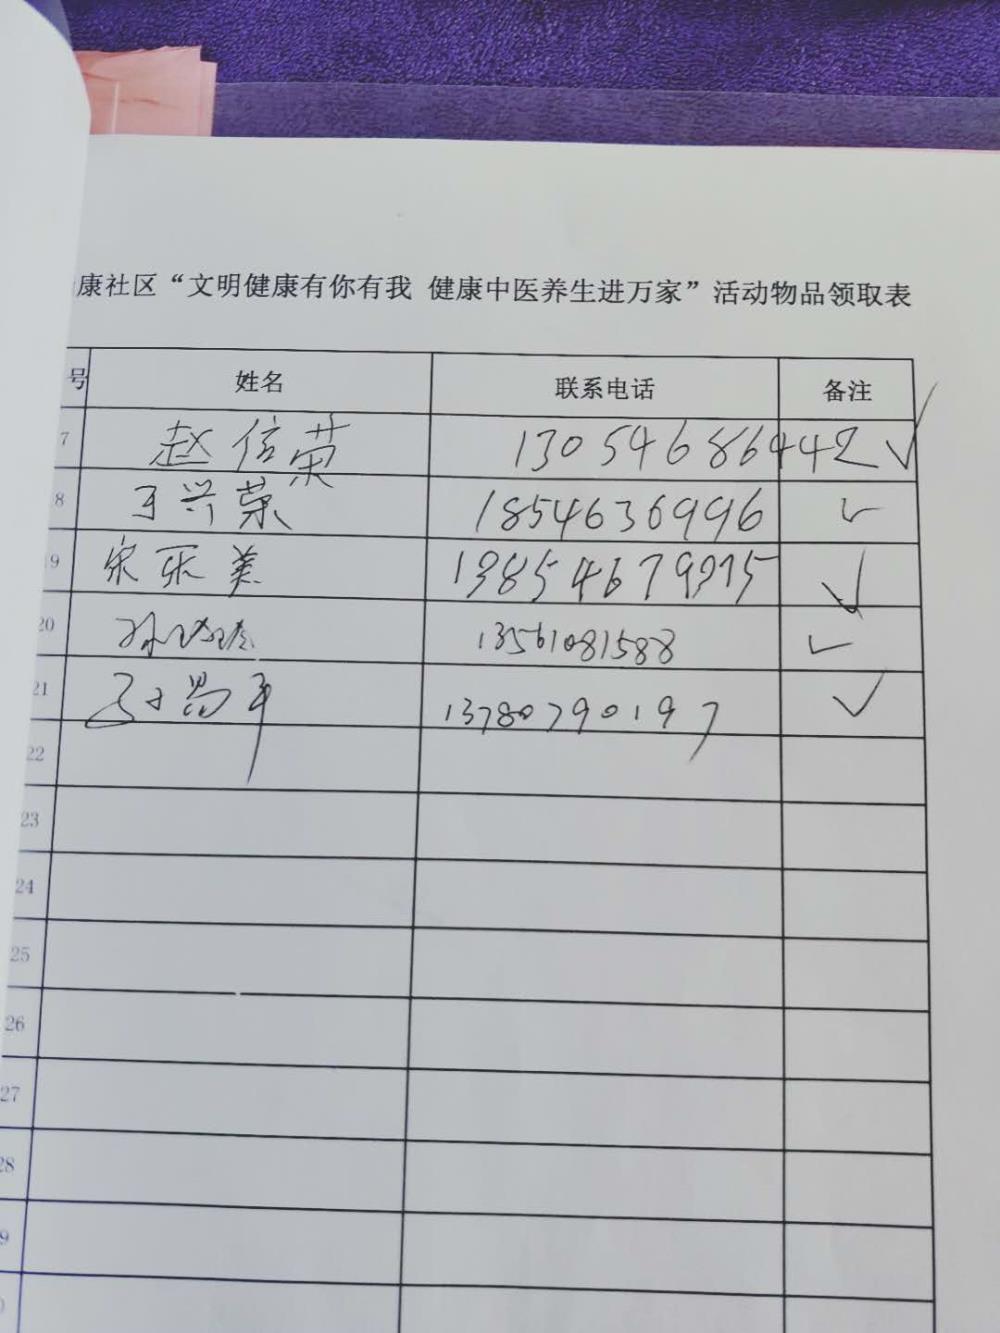 康社区“文明健康有你有我 健康中医养生进万家”活动物品领取表
号 姓名 联系电话 备注
7 赵信荣 13054686442 ✓
8 王兴荣 1854636996 ✓
19 宋乐美 ✓
20 孙 13561081588 ✓
21 昌平 13780790197 ✓
22
23
24
25
26
27
28
9